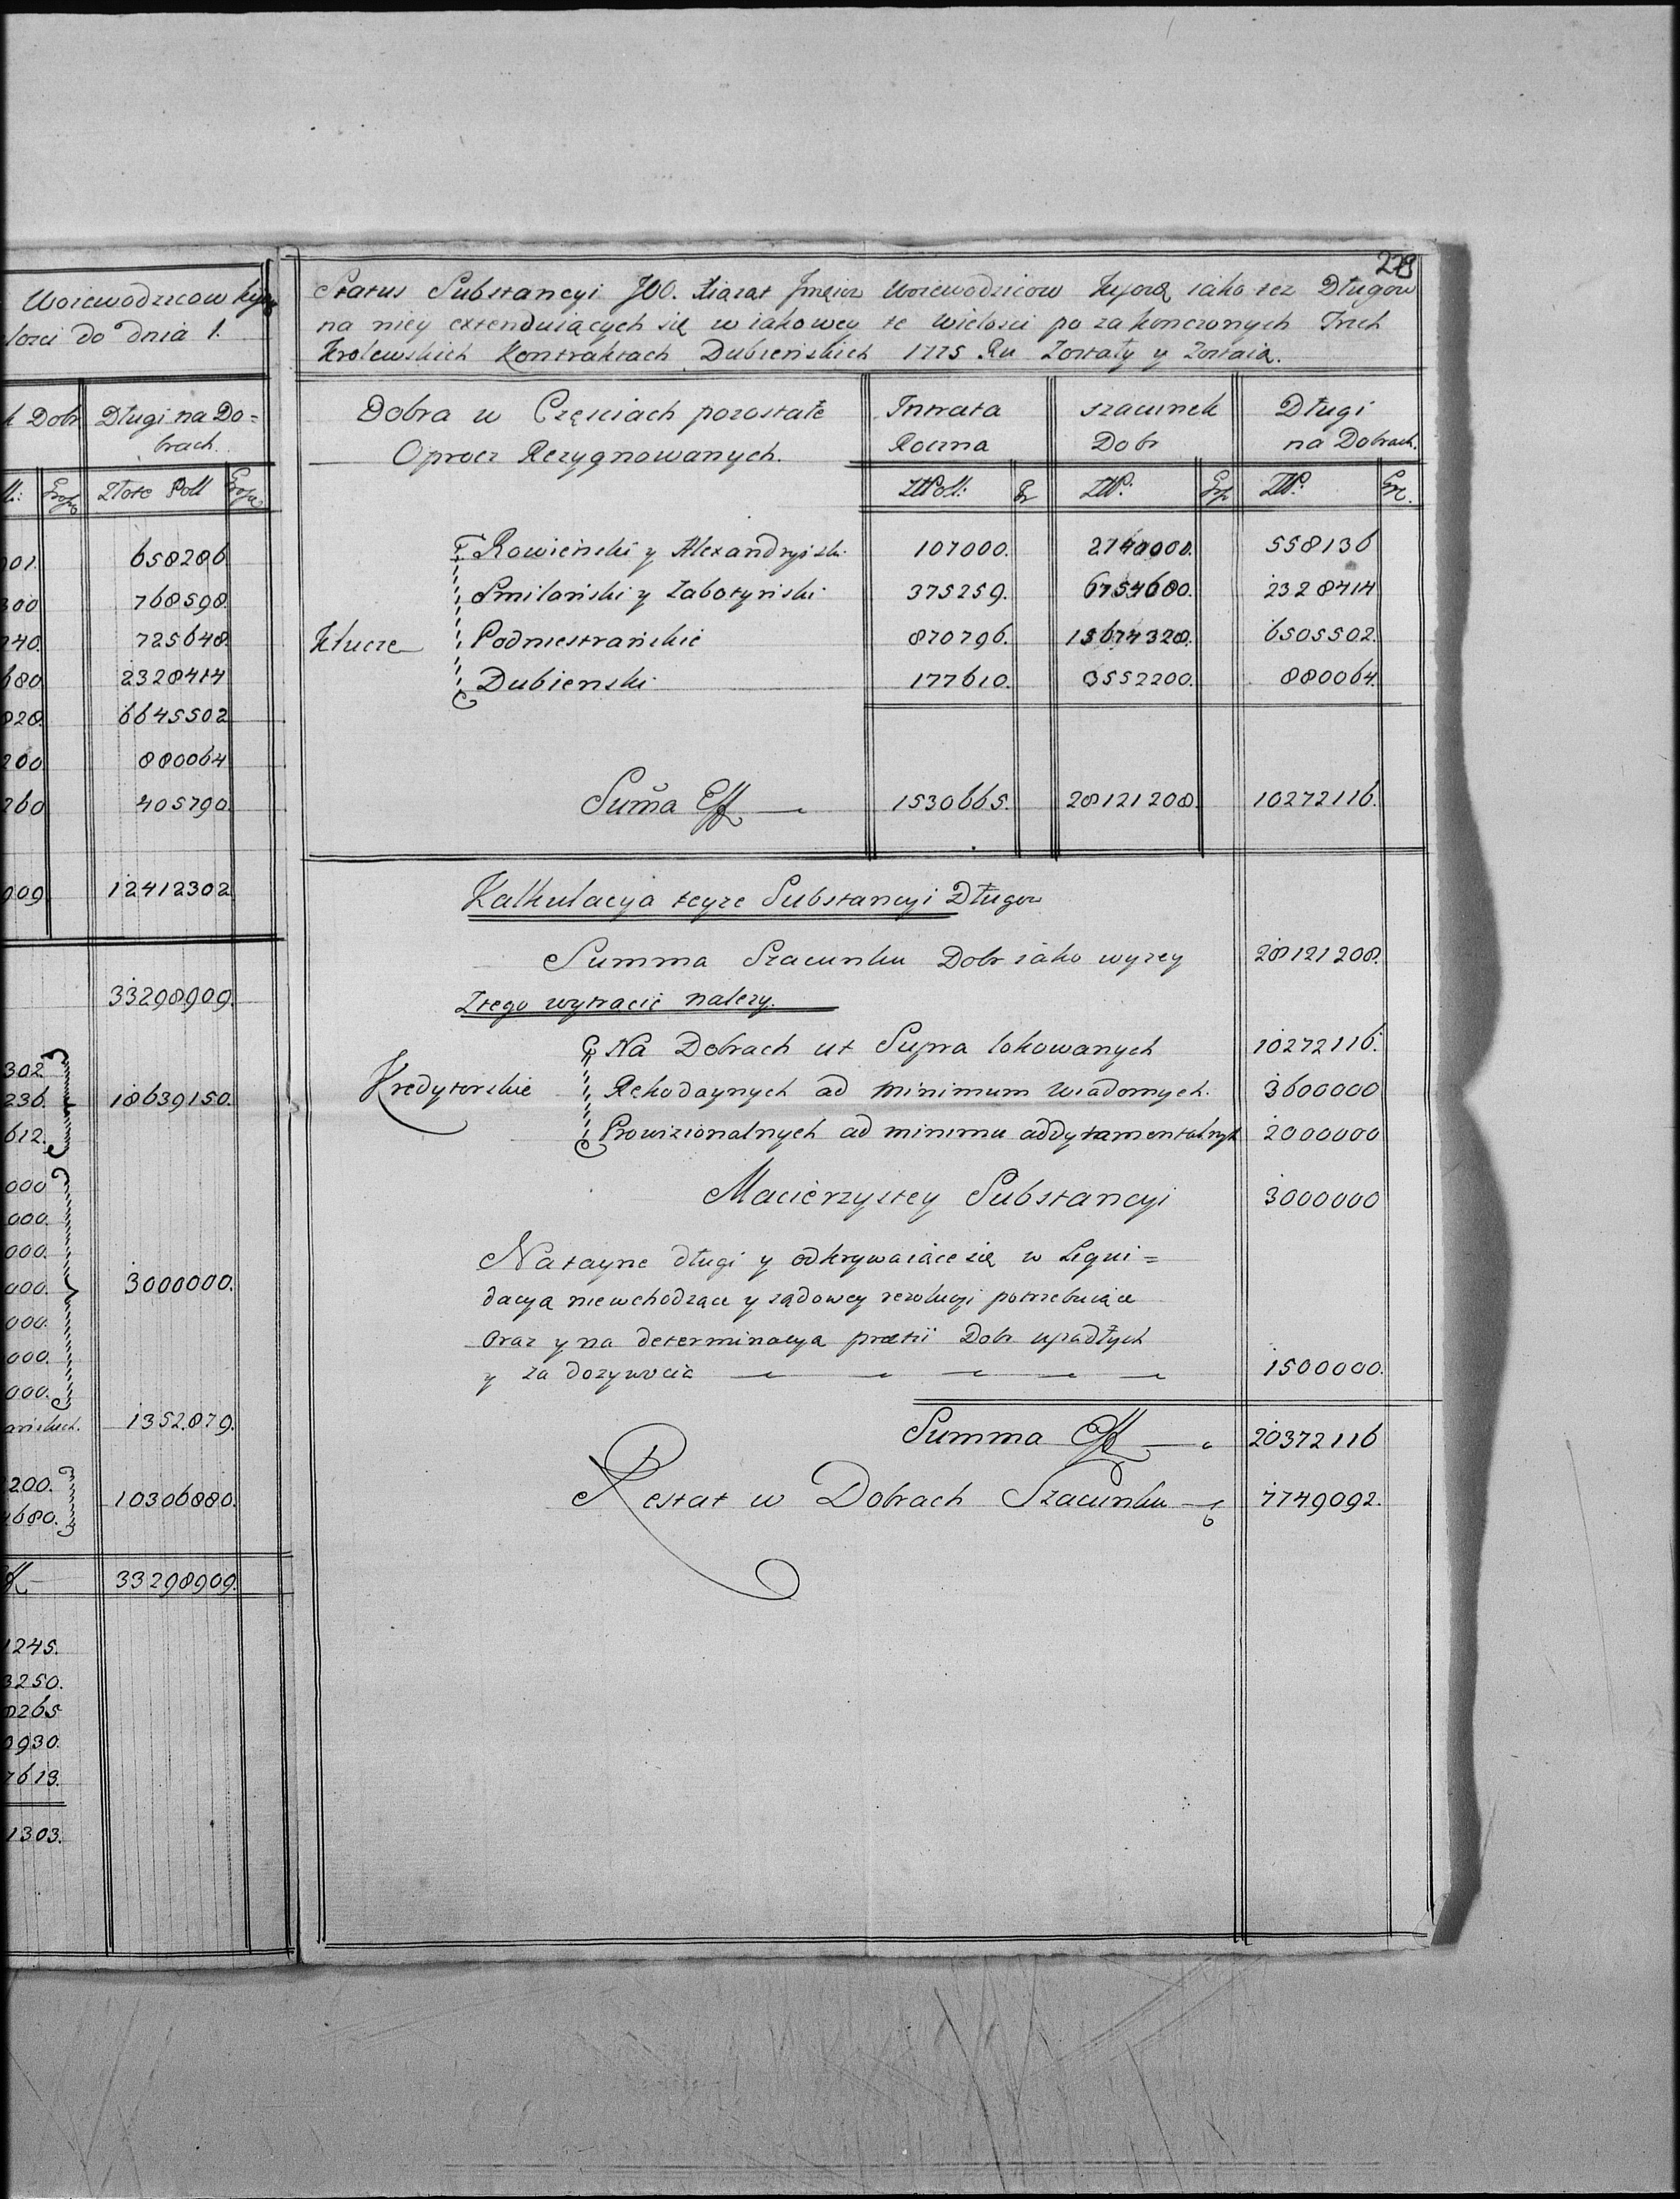 Woiewodzicow Kijow
do dnia 1.
k Dobr
Długi na Do=
brach.
Złote Poll
01. 658286
300 768598.
740. 725648.
680 2328414
828. 6645502
200 880064
260 405790.
909 12412302
33298909.
302.
236. 18639150.
612.
000
000.
000.
000. 3000000.
000.
000.
000.
1352879.
200. 10306880.
4680.
33298909.
1245.
3250.
8265
0930.
7613.
1303.
279
Status Substancyi JOO. Xiażąt Jmciow Woiewodzicow Kijows iako tez Długow
na niey extenduiących się w iakowey te wielosci po zakonczonych Trzech
Krolewskich Kontraktach Dubieńskich 1775 Ru Zostały y Zostaią.
Dobra w Częsciach pozostałe
Oprocz Rezygnowanych.
Intrata
Roczna
szacunek
Dobr
Długi
na Dobrach.
ZłPoll: Gr ZłP: Gr ZłP: Gr.
Rowieński y Alexandryiski 107000. 2140000. 558136
Smilański y Żabotyński 375259. 6754680. 2328414
Klucze Podniestrańskie 870796. 15674328. 6505502.
Dubienski 177610. 3552200. 880064.
Suma Eff 1530665. 28121208. 10272116.
Kalkulacya teyze Substancyi Długow
Summa Szacunku Dobr iako wyzey 28121208.
Ztego wytracić nalezy.
Na Dobrach ut Supra lokowanych 10272116.
Kredytorskie Rekodaynych ad minimum wiadomych. 3600000
Prowizionalnych ad minimu addytamentalnych 2000000
Macierzystey Substancyi 3000000
Natayne długi y odkrywaiące się w Liqui=
dacyą niewchodzące y sądowey rezolucyi potrzebuiące
Oraz y na determinacyą praetii Dobr upadłych
y za dozywocia 1500000.
Summa Eff 20372116
Restat w Dobrach Szacunku 7749092.